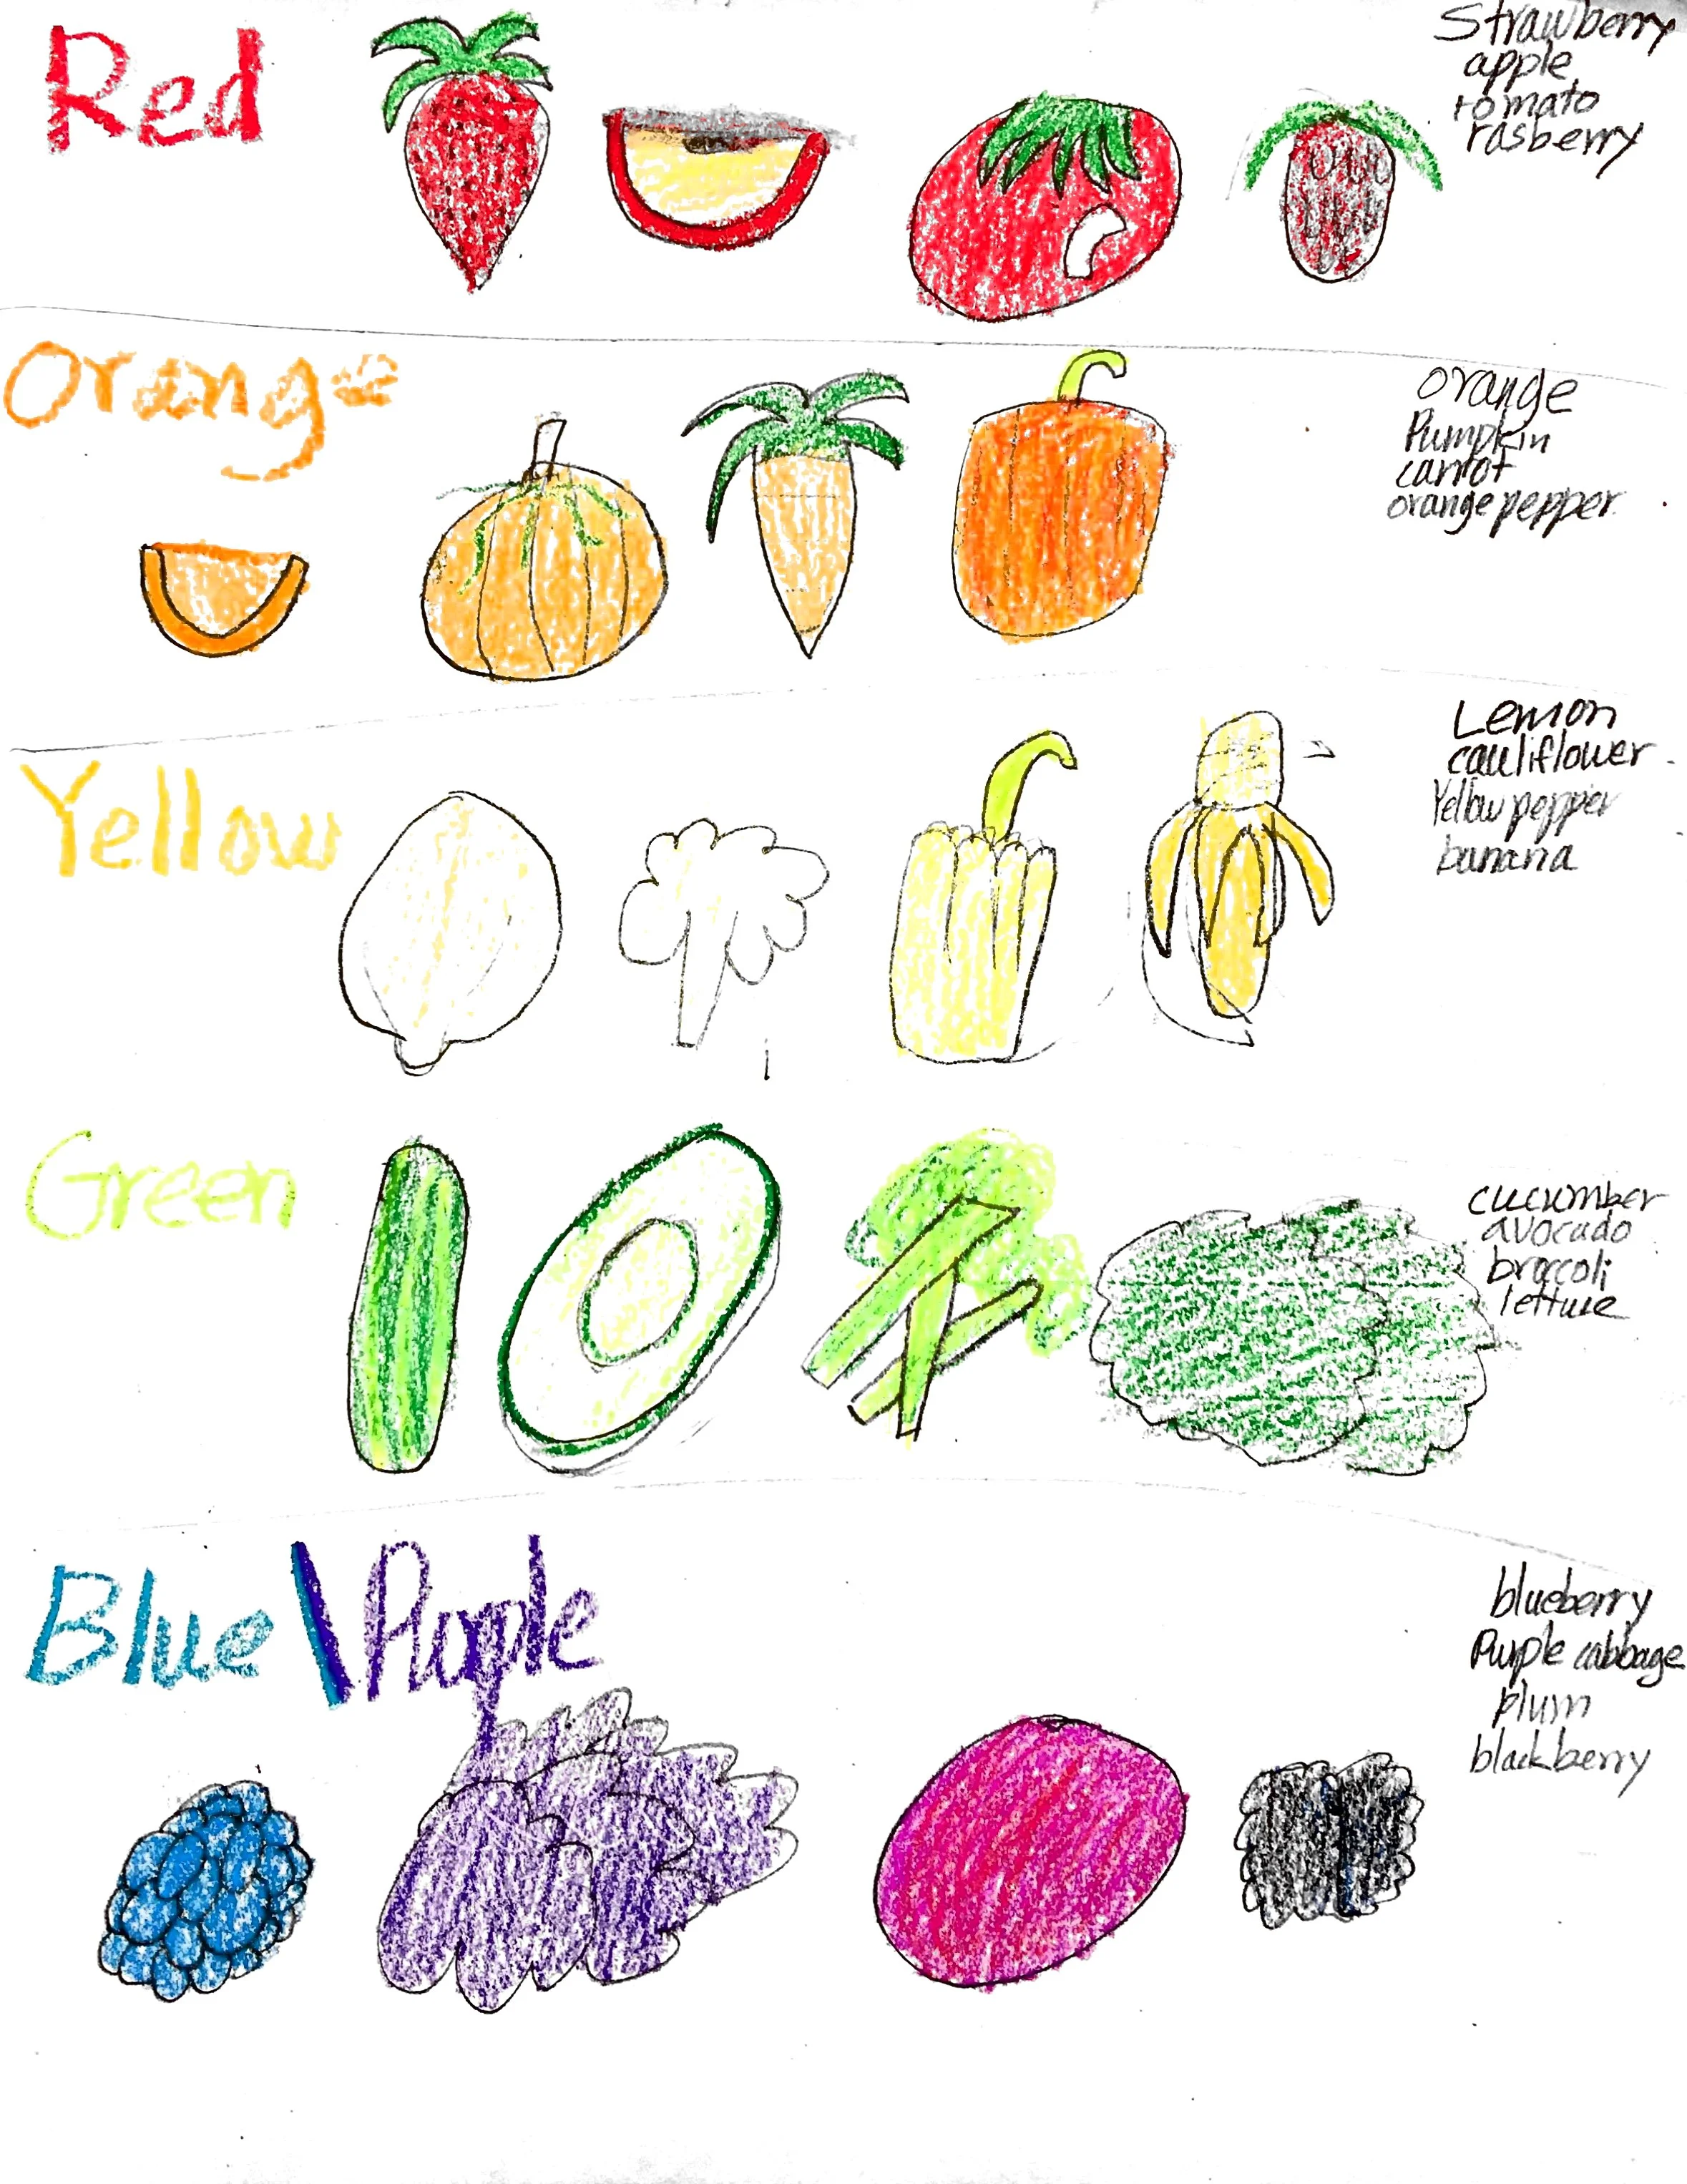 Red
Strawberry
apple
tomato
rasberry
Orange
orange
Pumpkin
carrot
orange pepper
Yellow
Lemon
cauliflower
Yellow pepper
banana
Green
cucumber
avocado
broccoli
lettuce
Blue \ Purple
blueberry
Purple cabbage
plum
blackberry